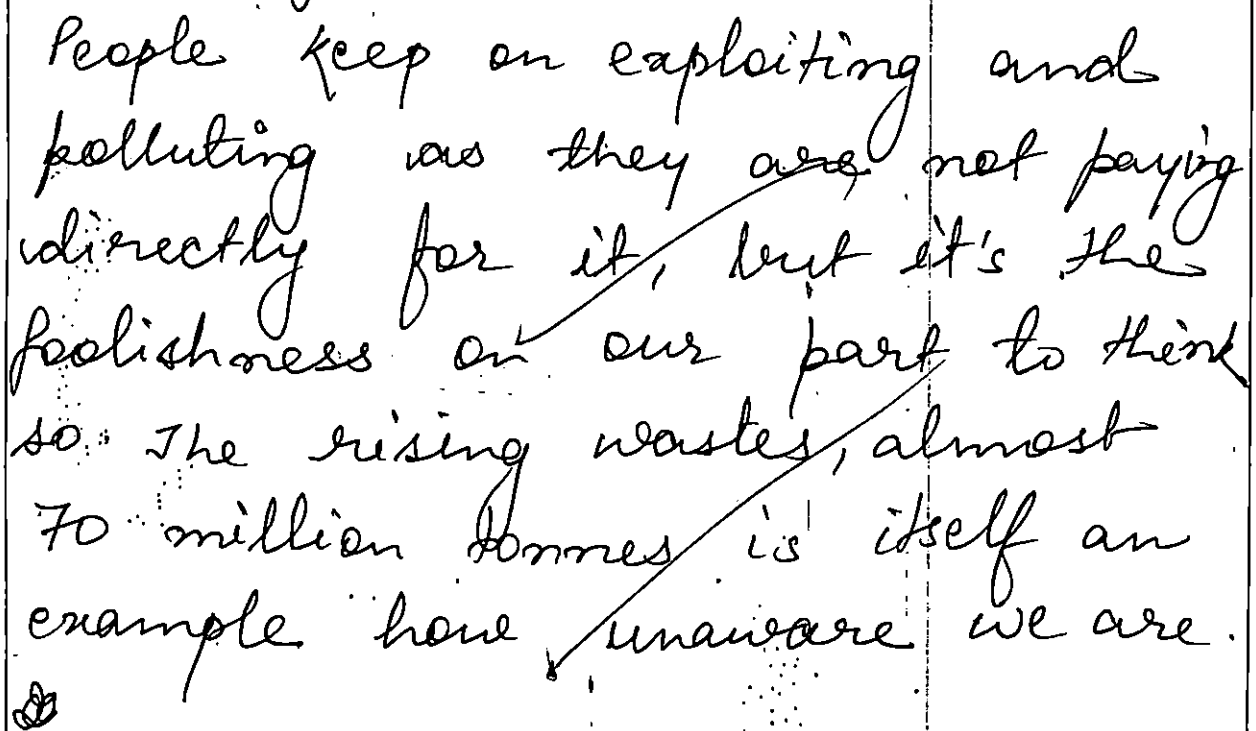 People keep on exploiting and
polluting as they are not paying
directly for it, but it's the
foolishness on our part to think
so. The rising wastes, almost
70 million tonnes is itself an
example how unaware we are.